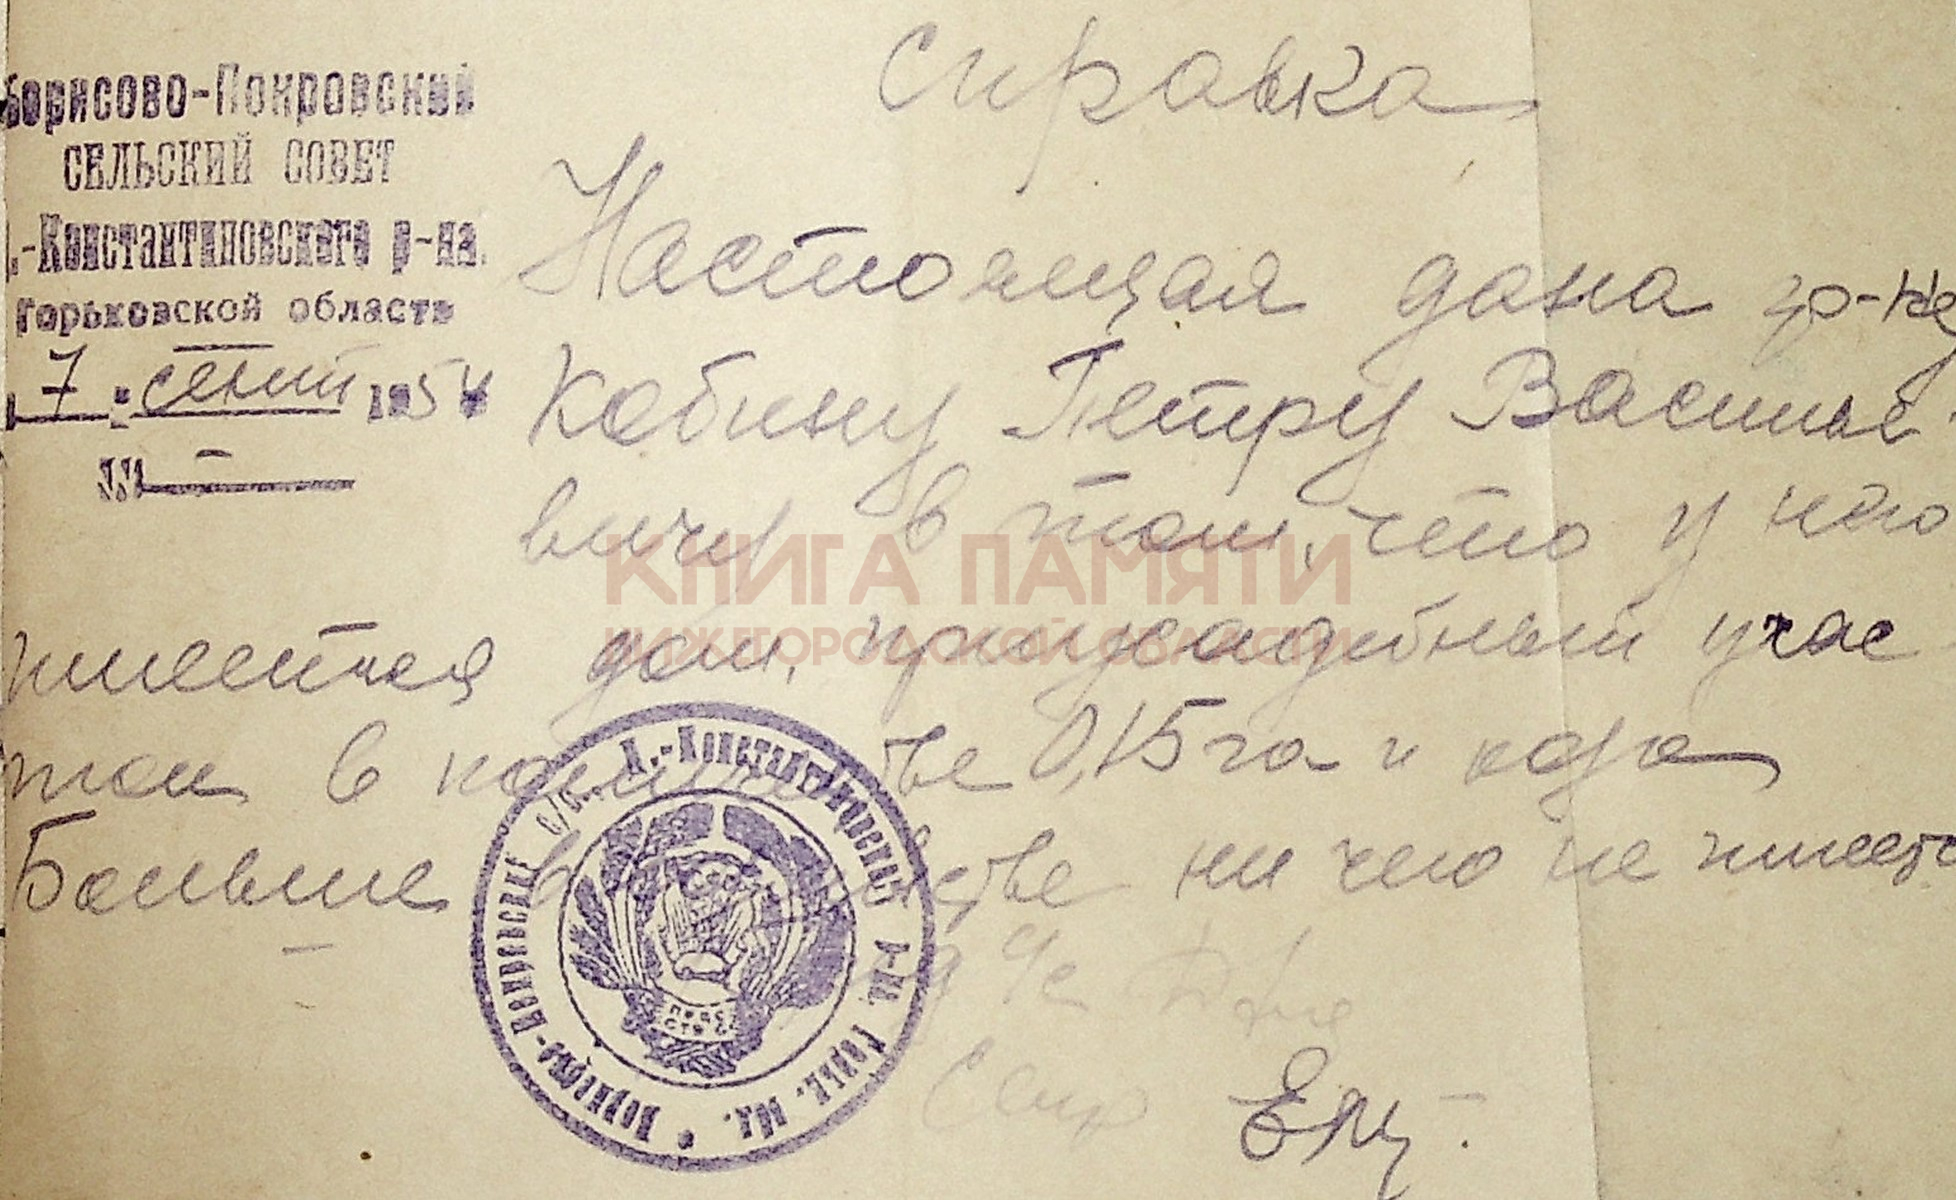 Справка
Борисово-Покровский
СЕЛЬСКИЙ СОВЕТ
.-Константиновского р-на.
Горьковской области
7 сент 1954
№
Настоящая дана гр-не
Кабину Петру Василье
вичу в том, что у него
имеется дом, приусадебный учас
ток в количестве 0,15 га и коза
Больше в ни чего не имеет
КНИГА ПАМЯТИ
НИЖЕГОРОДСКОЙ ОБЛАСТИ
Борисово-Покровский с/с. Д.-Константиновский р-на Горьк. обл.
Секр